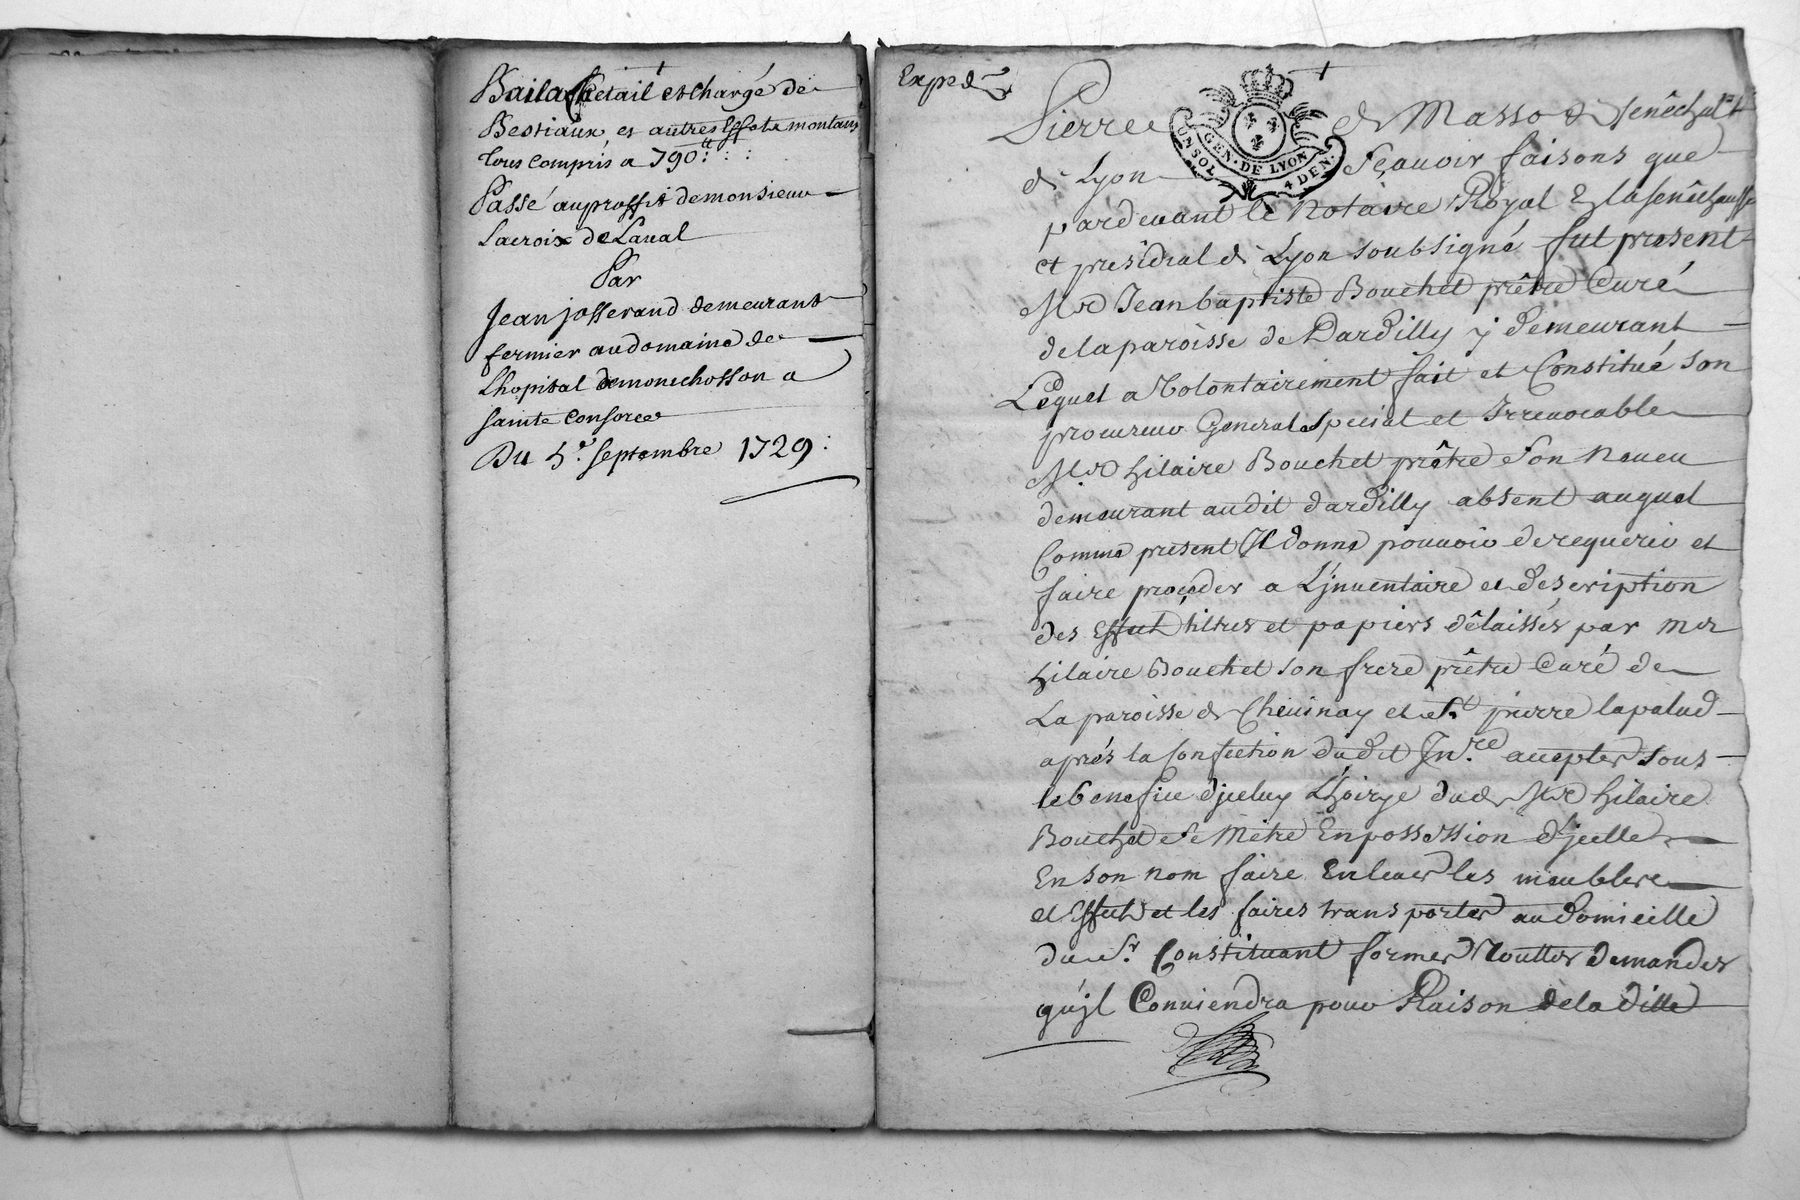 Bail a Chetail et chargé de
Bestiaux et autres Effets montans
tous compris a 790ᵗᵗ
Passé au proffit de monsieur
Lacroix de Laual
Par
Jean josserand demeurant
fermier au domaine de
Lhopital de monechosson a
Sainte Consorce
Du 5.e septembre 1729
Exped
Pierre de Masso Senêchal
de Lyon Sçauoir faisons que
GEN. DE LYON
UN SOL 4 DEN.
pardeuant le Notaire Royal En la senêchaussée
et presidial de Lyon soubsigné fut present
Mre Jean baptiste Bouchet prêtre Curé
de la paroisse de Dardilly y demeurant
Lequel a Volontairement fait et Constitué son
procureur General Special et Irreuocable
Mre hilaire Bouchet prêtre son neueu
demeurant audit dardilly absent auquel
Comme present Il donne pouuoir de requerir et
faire proceder a L'jnuentaire et description
des Effets tiltres et papiers délaissés par Mre
hilaire Bouchet son frere prêtre Curé de
La paroisse de Cheuinay et St pierre lapalud
aprés la Confection dudit Jn.re accepter sous
le benefice d'jceluy L'hoirye dud Mre hilaire
Bouchet se mêtre En possession d'jcelle
En son nom faire Enleuer les meubles
et Effets et les faires transporter au domicille
dud sr. Constituant former touttes demandes
qu'jl Conuiendra pour Raison de la ditte